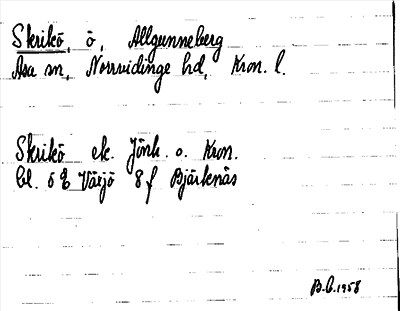 Skrikö, ö, Allgunneberg
Asa sn, Norrvidinge hd, Kron. l.
Skrikö ek. Jönk. o. Kron.
bl. 5 Växjö 8 f Bjärknäs
B.C. 1958